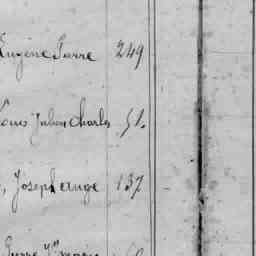 Eugène Pierre 249
Louis Julien Charles 51.
, Joseph ange 137
Pierre